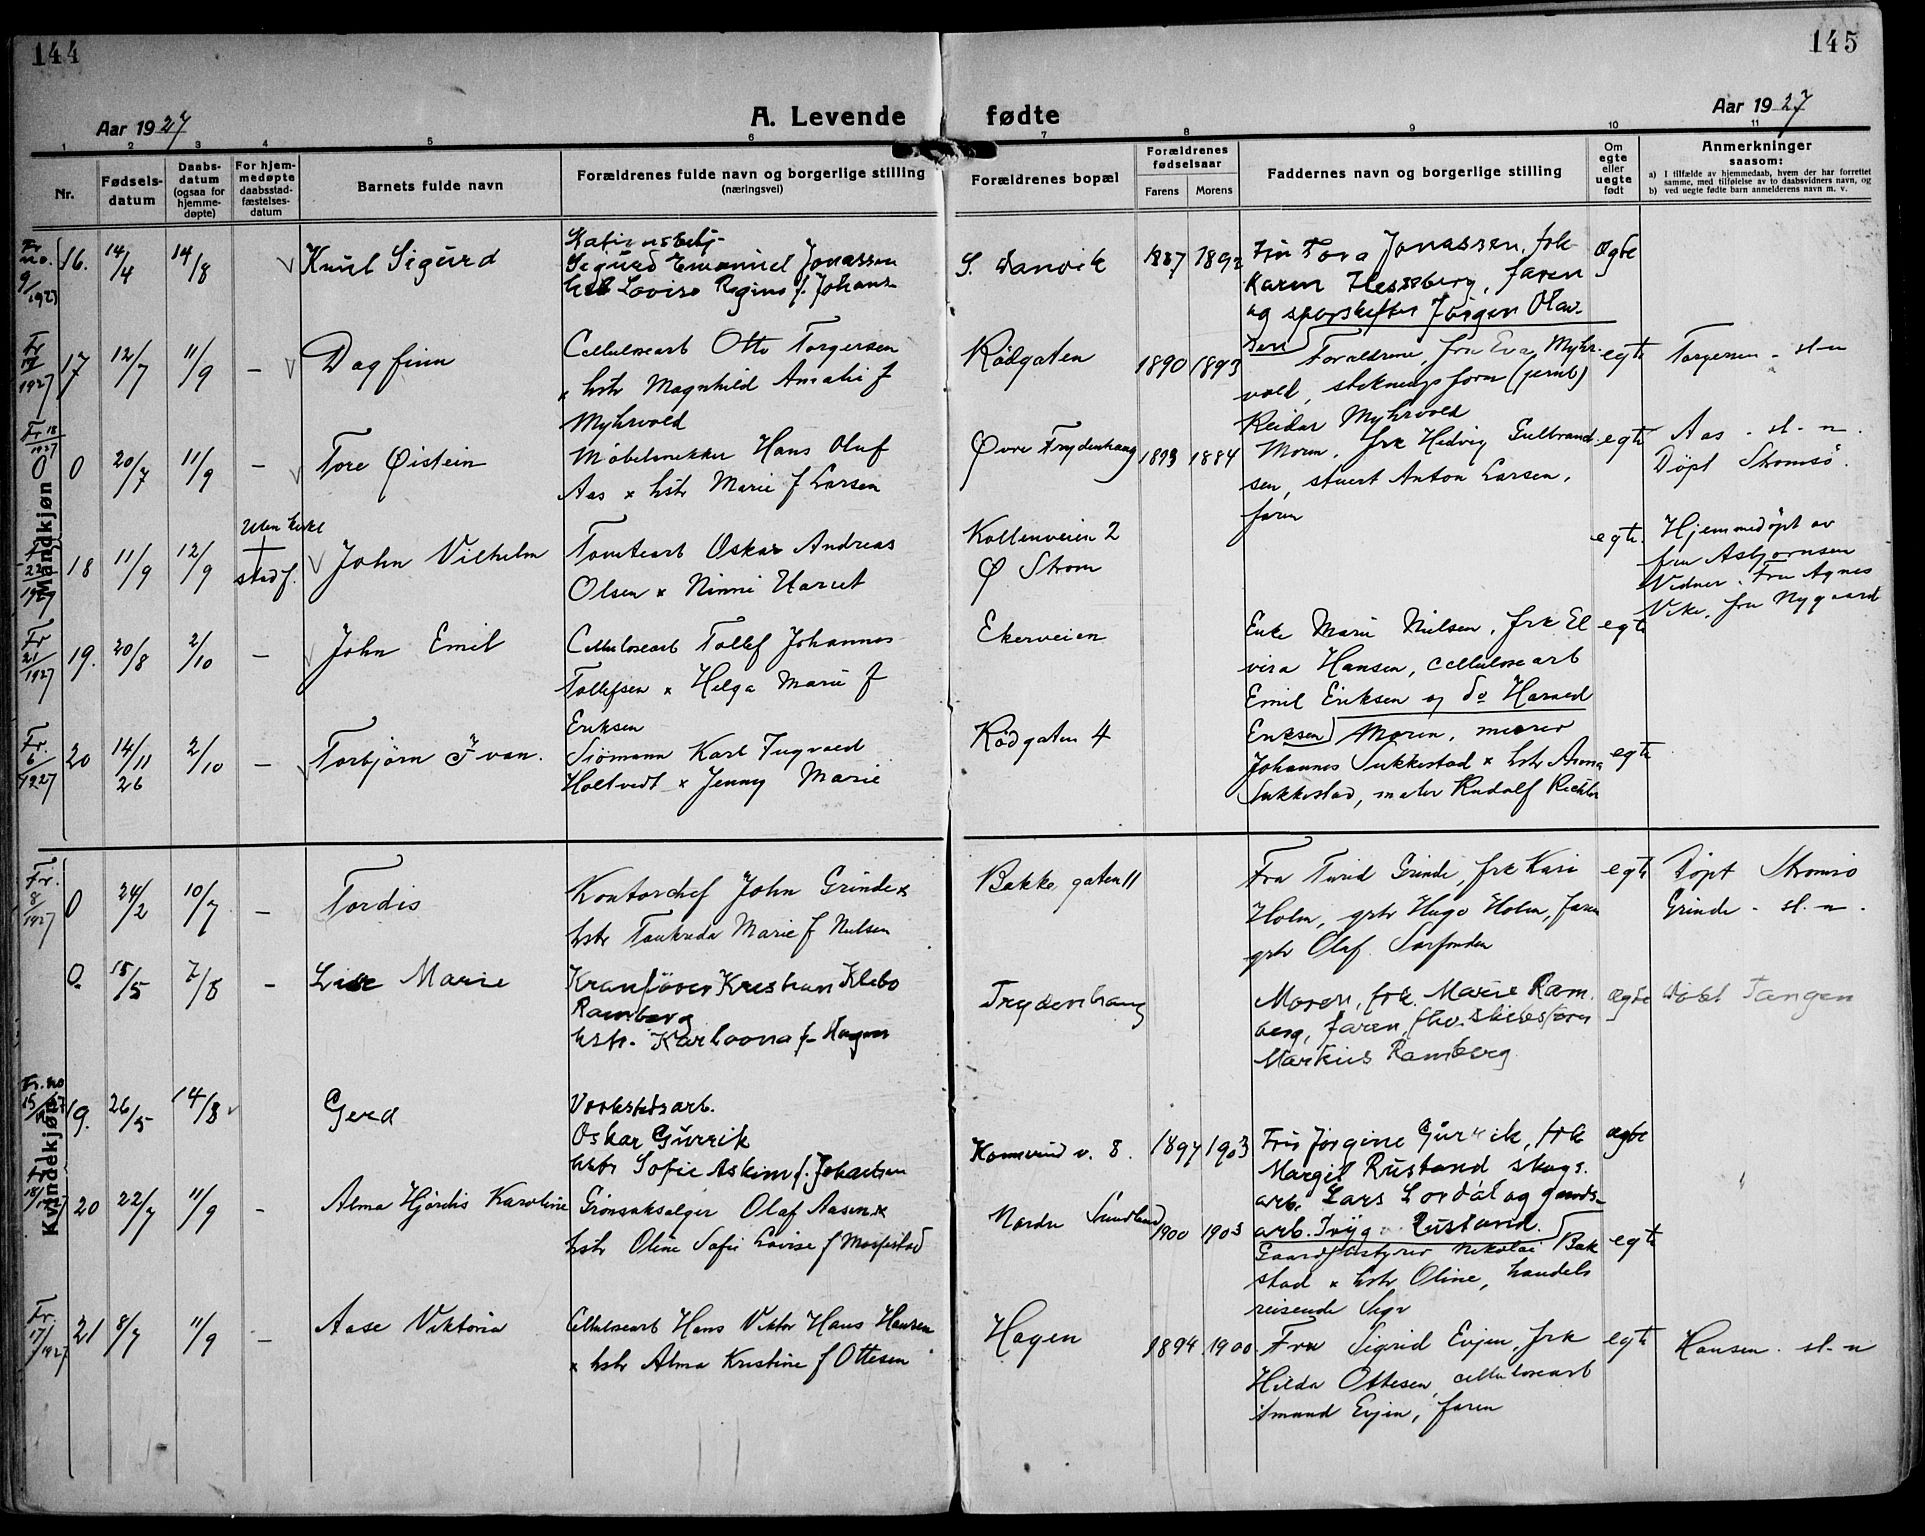 144
145
Aar 1927
A. Levende fødte
Aar 1927
1 2 3 4 5 6 7 8 9 10 11
Nr.
Fødsels-
datum
Daabs-
datum
(ogsaa for
hjemme-
døpte)
For hjem-
medøpte
daabsstad-
fæstelses-
datum
Barnets fulde navn
Forældrenes fulde navn og borgerlige stilling
(næringsvei)
Forældrenes bopæl
Forældrenes
fødselsaar
Farens Morens
Faddernes navn og borgerlige stilling
Om
egte
eller
uegte
født
Anmerkninger
saasom:
a) I tilfælde av hjemmedaab, hvem der har forrettet
samme, med tilføielse av to daabsvidners navn, og
b) ved uegte fødte barn anmelderens navn m. v.
Mandkjøn
16. 14/4 14/8 Knut Sigurd
Sigurd Emanuel Jonassen
Lovise Regine f. Johans
S. Sanvik 1887 1892
Fru Tora Jonassen, frk
Karen Hessberg, faren
og sporskifter Jörgen Olav-
sen
Ægte
Fr 1927
17 12/7 11/9 - Dagfinn
Cellulosearb Otto Torgersen
hstr Magnhild Amalie f
Myhrvold
Rødgaten 1890 1893
Foreldrene, fru Eva Myhr-
vold, (jernb)
Reidar Myhrvold
egte
Torgersen - sl-n
Fr 18/1927
0 20/7 11/9 - Tore Øistein
Møbelsnekker Hans Oluf
Aas x hstr Marie f Larsen
Øvre Frydenhaug 1893 1884
Moren, frk Hedvig Gulbrand-
sen, stuert Anton Larsen,
faren
egte
Aas - sl-n.
Døpt Strømsö.
Fr 22/1927
18 11/9 12/9 stadf. John Vilhelm
Tomtearb Oskar Andreas
Olsen x Ninni Harriet
Kollenveien 2
Ø Strøm
egte.
Hjemmedöpt av
fru Asbjørnsen
Vidner. Fru Agnes
Vike, fru Nygaard
Fr 21/1927
19. 20/8 2/10 - John Emil
Cellulosearb Tollef Johannes
Tollefsen x Helga Marie f
Eriksen
Ekerveien
Enke Marie Nielsen, frk El
vira Hansen, cellulosearb
Emil Eriksen og do Harald
Eriksen
egte
Fr. 6/1927
20 14/11 26 2/10 - Torbjørn Ivan.
Sjömann Karl Ingvald
Holtvedt x Jenny Marie
Rødgaten 4
Moren, murer
Johannes Sukkestad x hstr Anna
Sukkestad, maler Rudolf Richter
egte
Kvindekjøn
Fr. 8/1927
0 24/2 10/7 - Tordis
Kontorchef John Grinde x
hstr Marie f Nielsen
Bakkegaten 11
Fru Turid Grinde, frk Kari
Holm, grh Hugo Holm, faren
grh Olaf
egte
Döpt Strømsö
Grinde - sl.-n.
0. 15/5 7/8 - Lise Marie
Kranfører Kristian Klebo
Ramberg
hstr. Kari Lovna f. Hagen
Frydenhaug
Moren, frk. Marie Ram-
berg, faren, fhv.
Markus Ramberg.
Ægte
Döbt Tangen
Fr. no 15/1927
19. 26/5 14/8 Gerd
Verkstedsarb.
Oskar Gurrik
hstr Sofie Askim f. Johansen
v. 8. 1897 1903
Fru Jörgine Gurrik, frk
Margit Rustand skogs-
arb. Lars Lordal og gaards-
arb. Rustand.
ægte
Fr 18/1927
20 22/7 11/9 - Alma Hjørdis Karoline
Grønsakselger Olaf Aasen x
hstr Oline Sofie Lovise f
Nordre Sundland 1900 1903
Gaardsbestyrer Nikolai Bak
stad x hstr Oline, handels
reisende
egte
Fr. 17/1927
21 8/7 11/9 - Aase Viktoria
Cellulosearb Hans Viktor Hans Hansen
x hstr Alma Kristine f Ottesen
Hagen 1894 1900
Fru Sigrid Evjen, frk
Hilda Ottesen, cellulosearb
Amund Evjen, faren
egte
Hansen - sl-n